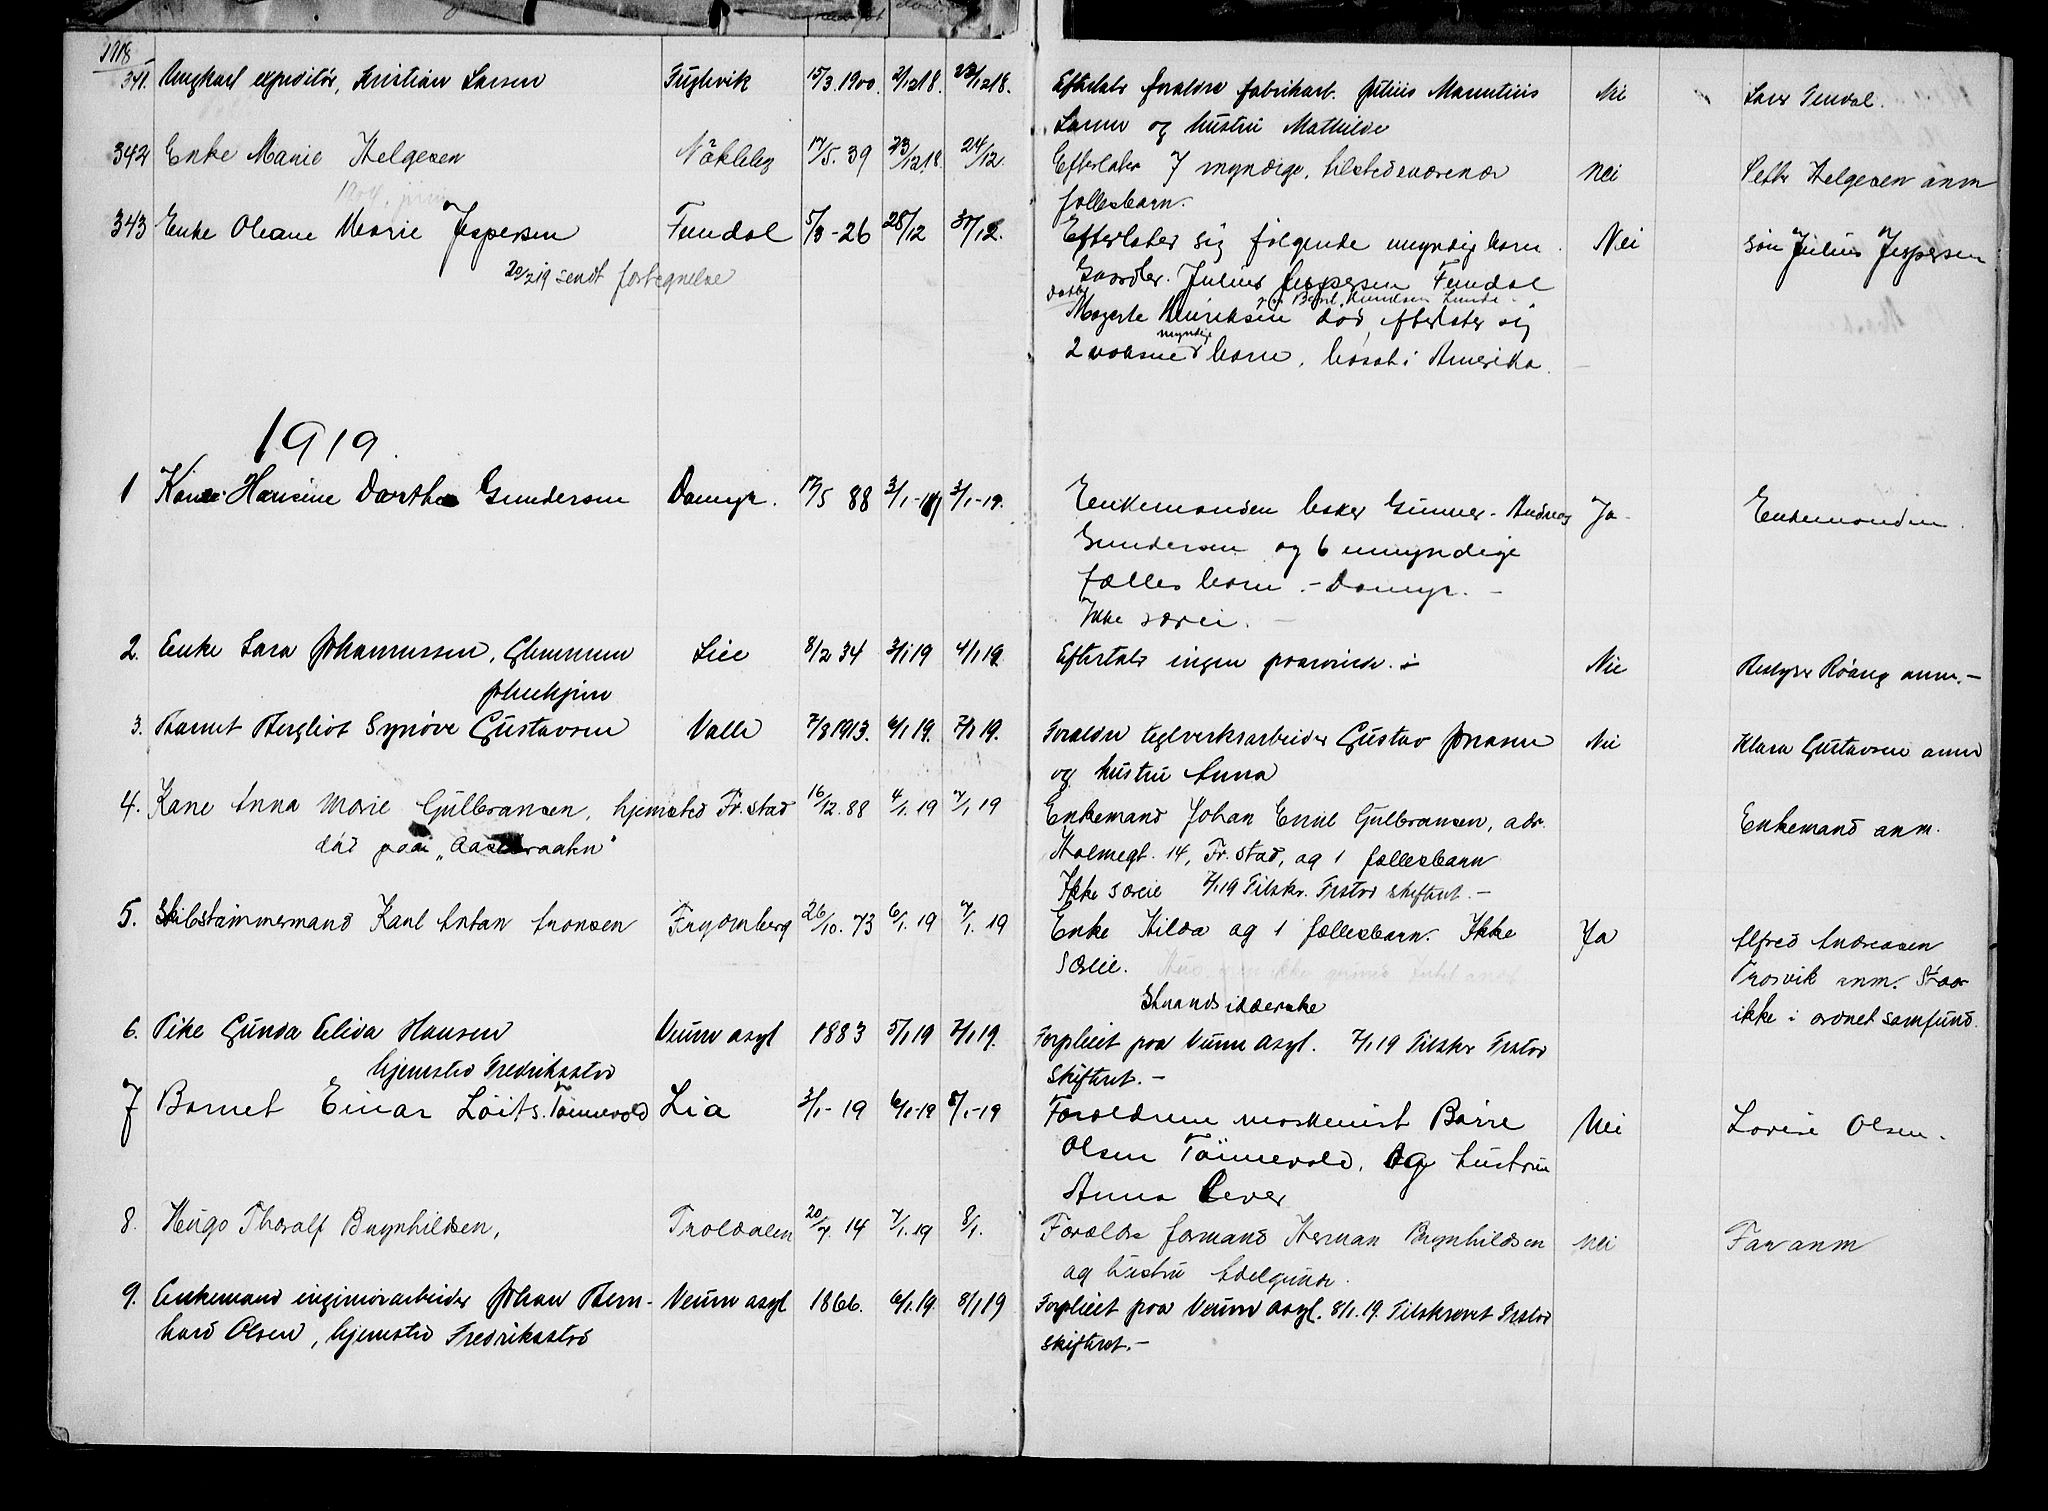 1918
341. Ungkarl expeditör, Kristian Larsen Fuglevik 15/3.1900. 2/12 18. 23/12 18. Efterlater foraldre fabrikarb. Julius Mauritius Nei Lars Tendal.
Larsen og hustru Mathilde
342 Enke Marie Helgesen Nökleby 17/5. 39 23/12 18. 24/12. Efterlater 7 myndige, tilstedeværende Nei Petter Helgesen anm
fællesbarn.
343 Enke Oleane Marie Jespersen Tendal 5/3-26 28/12 30/12. Efterlater sig følgende myndig barn. Nei søn Julius Jespersen
20/2 19 sendt fortegnelse
Gaardbr. Julius Jespersen Tendal
datter
Magrete Henriksen død, efterlater sig
myndige
2 voksne barn, bosat i Amerika.
1919.
1 Kone Hansine Dorthea Gundersen Damyr. 17/5 88 3/1-19 3/1-19. Enkemanden besker Gunner Andreas Ja- Enkemanden.
Gundersen og 6 umyndige
fælles barn. - Damyr. -
Ikke særei. -
2. Enke Sara Johannessen, Glemmen Lie 8/2 34 3/1 19 4/1 19. Efterlater ingen Nei Bestyrer Röang anm. -
pleiehjem
3. Barnet Bergliot Synöve Gustavsen Valle 7/8 1913. 6/1 19. 7/1 19. Foraldre teglverksarbeider Gustav Jonasen Nei Klara Gustavsen anm
og hustru Anna
4. Kane Anna Marie Gulbransen, hjemsted Fr. stad 16/12. 88 4/1. 19 7/1 19 Enkemand Johan Emil Gulbransen, adr. Enkemand anm.
död paa
Holmegt. 14, Fr. stad, og 1 fællesbarn
Ikke særeie 7/1 19 Tilskr. Frstad skifteret. -
5. Skibstömmermand Karl Anton Aronsen Frydenberg 26/10. 73 6/1. 19 7/1. 19 Enke Hilda og 1 fællesbarn. Ikke Ja Alfred Andreassen
særeie.
Trosvik anm. Staar
Strandsidderske
ikke i ordnet samfund.
6. Pike Gunda Elida Hansen Veum asyl 1883 5/1 19 7/1 19. Forpleiet paa Veum asyl. 7/1 19 Tilskr Frstad
hjemsted Fredriksstad
skifteret. -
7 Barnet Einar Löits. Tömmevold Lia 3/1-19 6/1-19 8/1-19 Foraldrene maskinist Börre Nei Lovise Olsen.
Olsen Tömmevold, og hustru
Anna
8. Hugo Thoralf Brynhildsen, Troldalen 20/7. 14 7/1. 19 8/1. Foraldre formand Herman Brynhildsen Nei Far anm
og hustru Adelgunde.
9. Enkemand ingeniörarbeider Johan Bern- Veum asyl 1866. 6/1.19. 8/1 19 Forpleiet paa Veum asyl. 8/1.19. Tilskrevet Frstad
hard Olsen, hjemsted Fredriksstad
skifteret. -